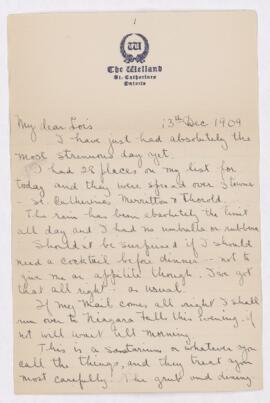 1
W
The Welland
St. Catharines
Ontario
My dear Lois 13th Dec 1909
I have just had absolutely the
most strenuous day yet.
I had 28 places on my list for
today and they were spread over 3 towns
- St Catherines Merritton & Thorold.
The rain has been absolutely the limit
all day and I had no umbrella or rubbers
Shouldn't be surprised if I should
need a cocktail before dinner - not to
give me an appetite though. I've got
that all right as usual.
If my mail comes all right I shall
run over to Niagara Falls this evening if
not will wait till morning
This is a sanitarium or whatever you
call the things, and they treat you
most carefully. The grub and dining